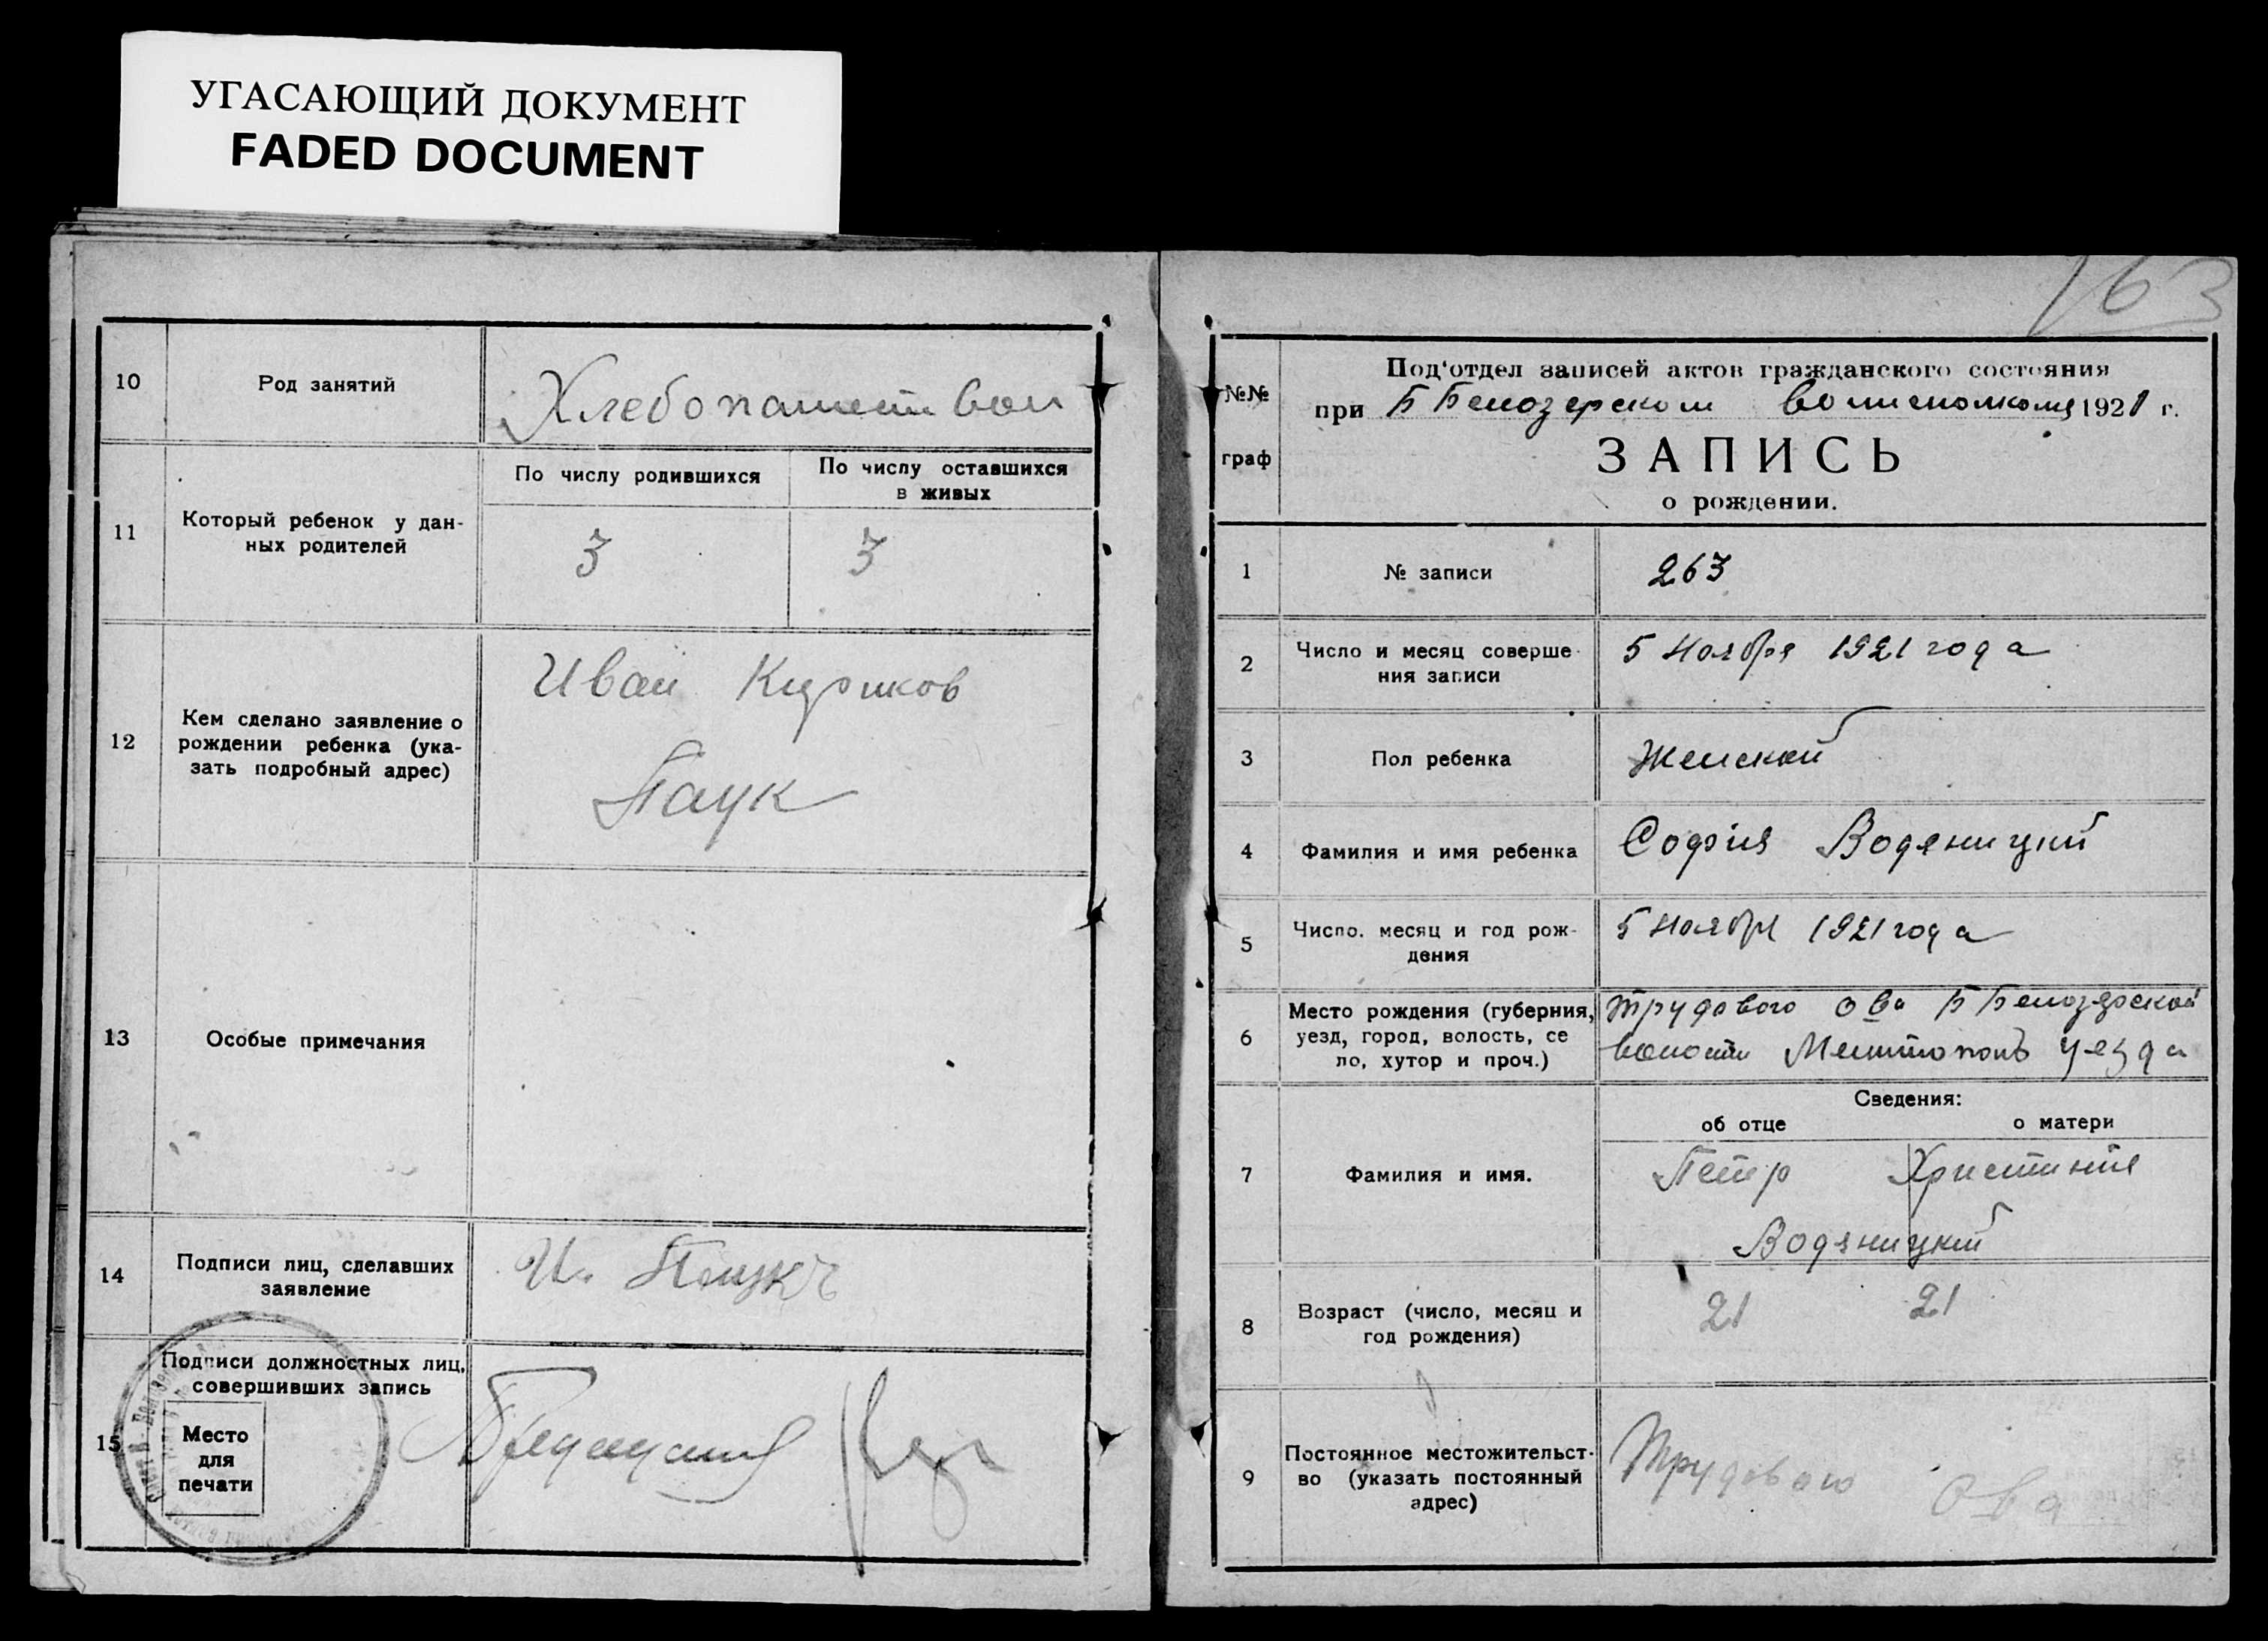 УГАСАЮЩИЙ ДОКУМЕНТ
FADED DOCUMENT
10
Род занятий
Хлебопашеством
11
Который ребенок у дан-
ных родителей
По числу родившихся
3
По числу оставшихся
в живых
3
12
Кем сделано заявление о
рождении ребенка (ука-
зать подробный адрес)
Иван
Паук
13
Особые примечания
14
Подписи лиц, сделавших
заявление
И. Паукъ
15
Подписи должностных лиц,
совершивших запись
Место
для
печати
163
№№
граф
Под'отдел записей актов гражданского состояния
при Б Белозерском волисполкоме 1921 г.
ЗАПИСЬ
о рождении.
1
№ записи
263
2
Число и месяц соверше-
ния записи
5 Ноября 1921 года
3
Пол ребенка
Женский
4
Фамилия и имя ребенка
София Водяницкий
5
Число, месяц и год рож-
дения
5 Ноября 1921 года
6
Место рождения (губерния,
уезд, город, волость, се
ло, хутор и проч.)
Трудового о-ва Б Белозерской
волости Мелитополь уезда
Сведения:
об отце
о матери
7
Фамилия и имя.
Петр Христиния
Водяницкий
8
Возраст (число, месяц и
год рождения)
21 21
9
Постоянное местожительст-
во (указать постоянный
адрес)
Трудового О-ва